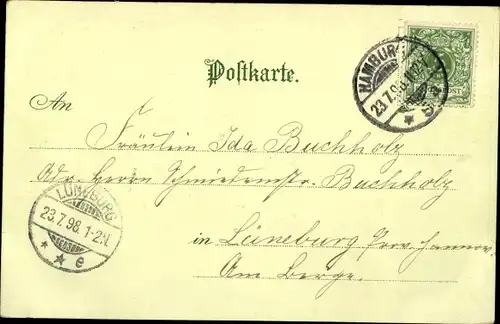 Postkarte.
HAMBURG
23.7.98.
An
Fräulein Ida Buchholz
Adr. Herrn Schmiedemstr. Buchholz
LÜNEBURG
23.7.98.1-2N.
* * e
in Lüneburg Prov. Hannov.
Am Berge.